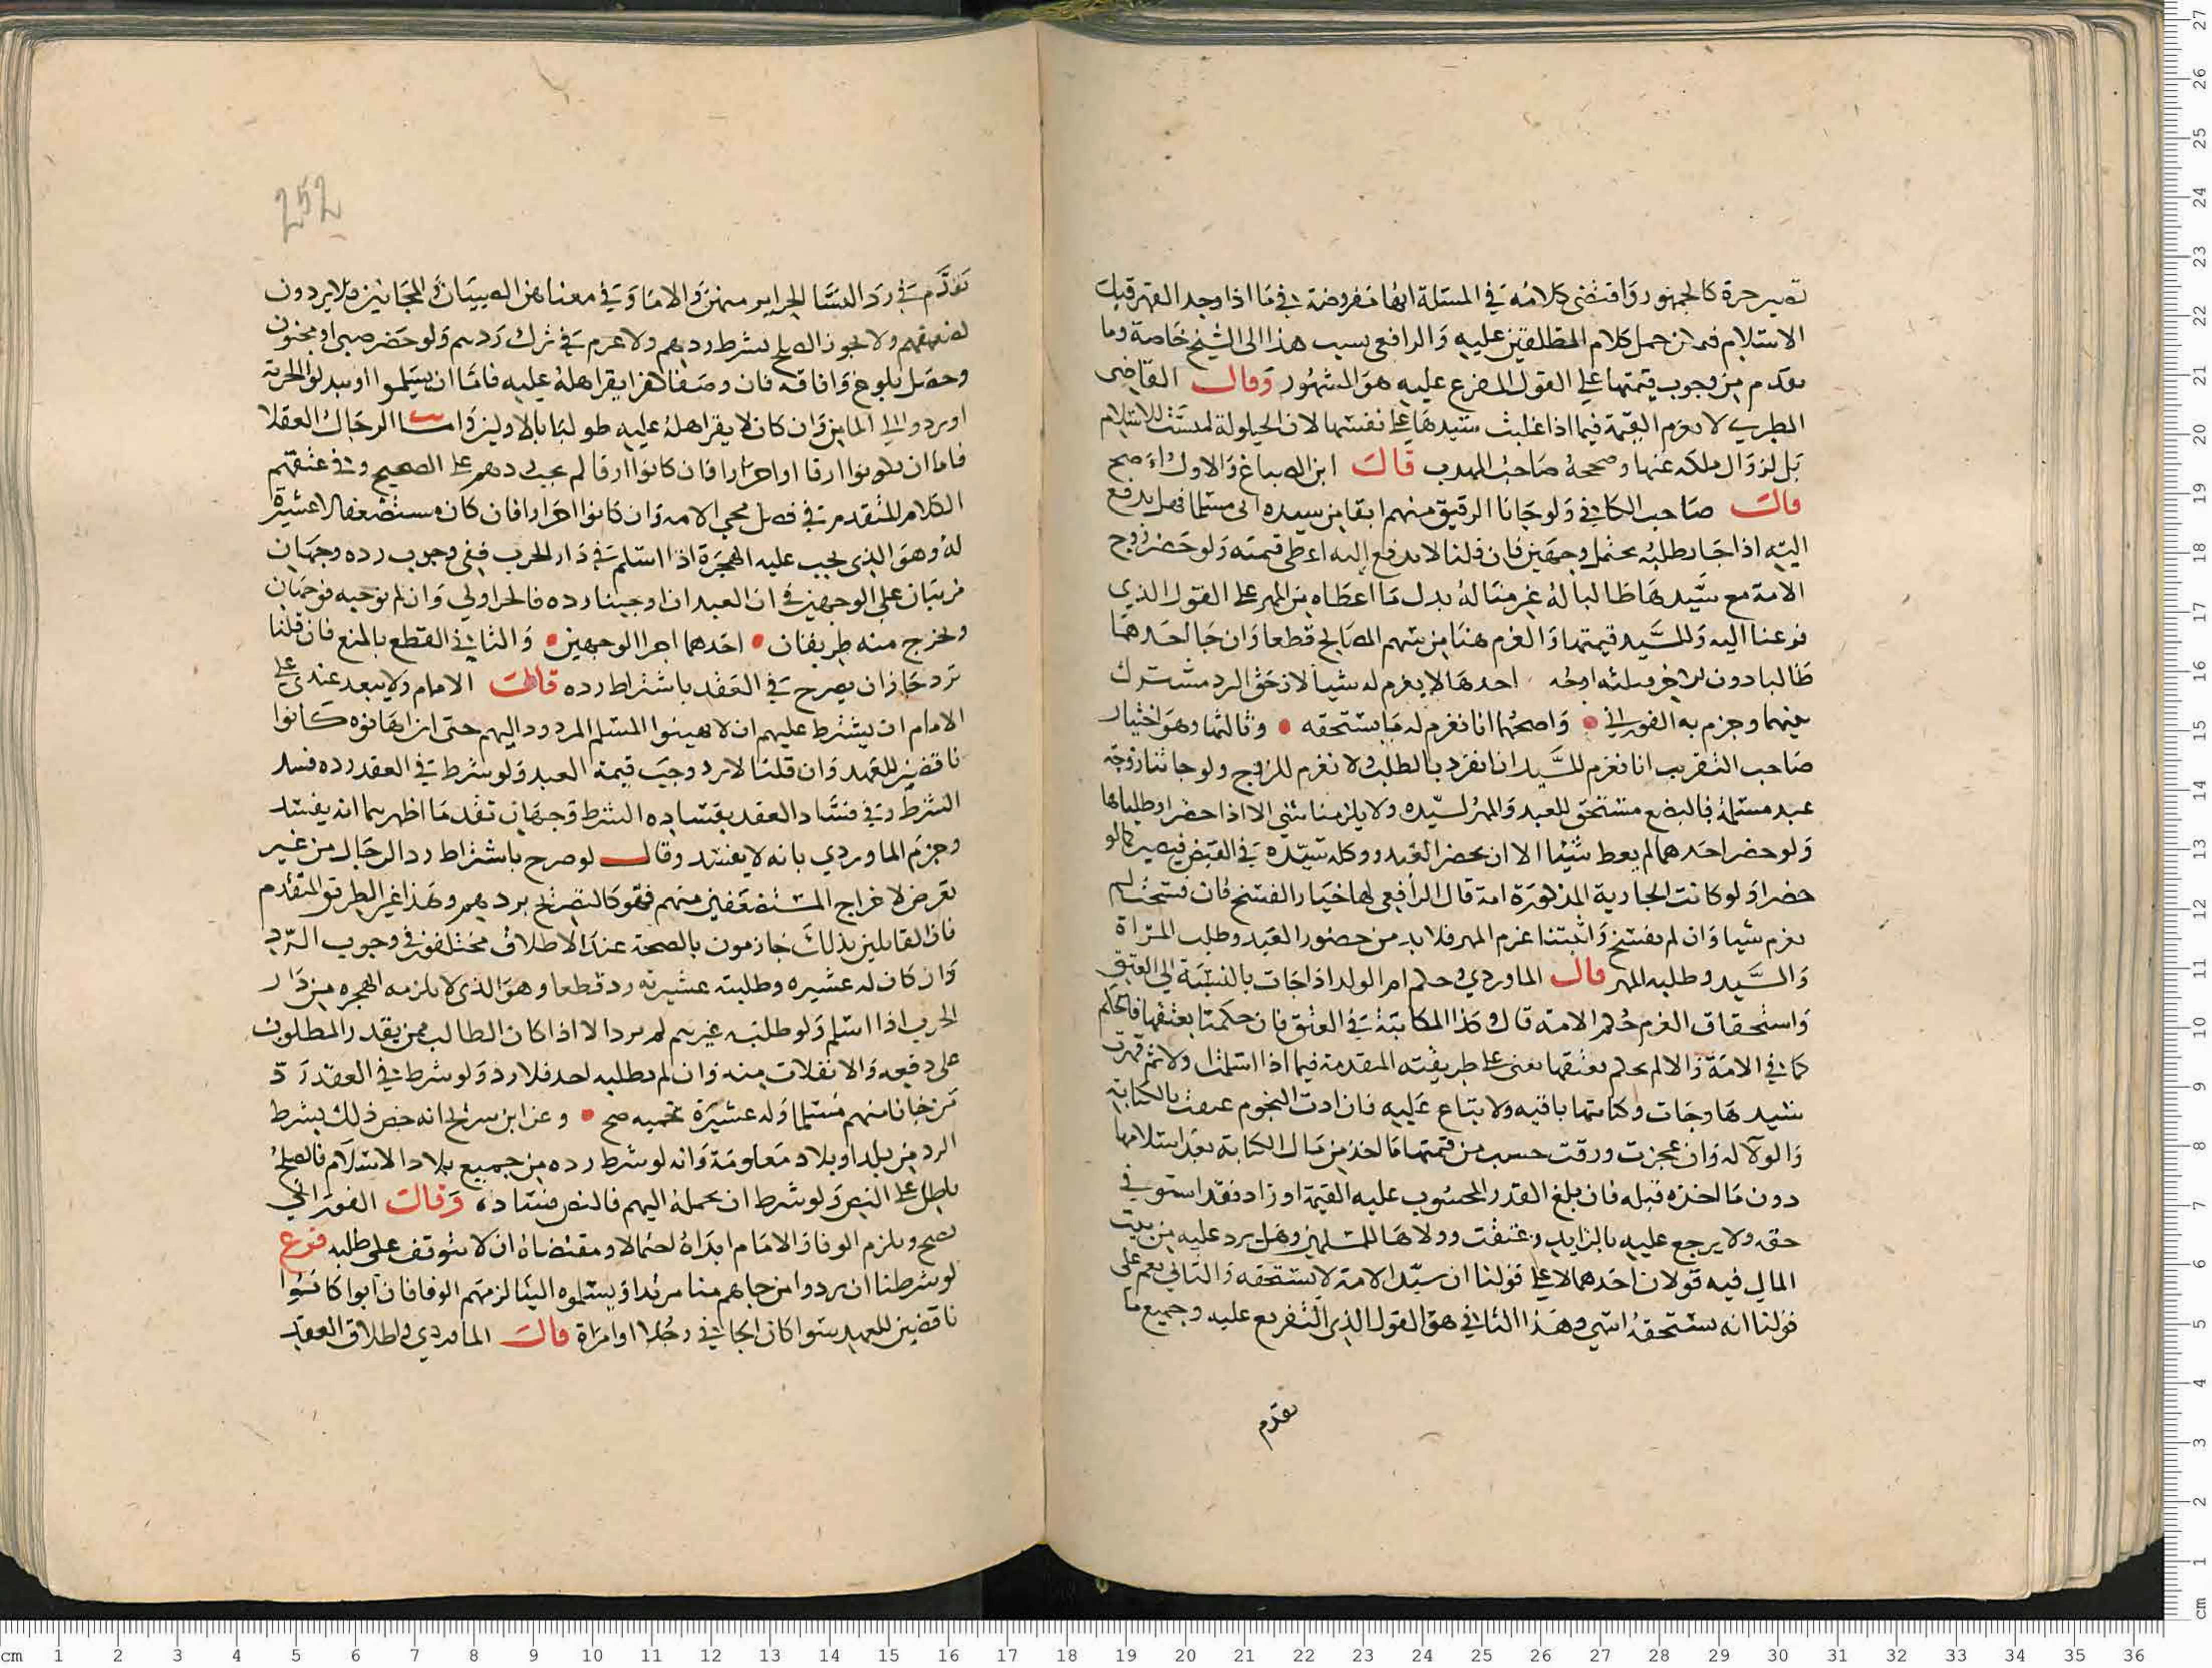 تصير حرة كالجمهور واقتضى كلامه في المسئلة انها مفروضة في ما اذا وجد القهر قبل
الاسلام فمن حمل كلام المطلقين عليه والرافعي نسب هذا الى الشيخ خاصة وما
تقدم من وجوب قيمتها على القول المفرع عليه هو المشهور وقال القاضى
الطبري لا نغرم القيمة فيما اذا غلبت سيدها على نفسها لان الحيلولة ليست للاسلام
بل لزوال ملكه عنها وصححه صاحب المهذب قال ابن الصباغ والاول اصح
قال صاحب الكافي ولو جانا الرقيق منهم ابقا من سيده الى مسلما فهل يدفع
اليه اذا جا يطلبه يحتمل وجهين فان قلنا لا يدفع اليه اعطى قيمته ولو حضر زوج
الامة مع سيدها طالبا له غرمنا له بدل ما اعطاه من المهر على القول الذي
فرعنا اليه وللسيد قيمتها والغرم هنا من سهم المصالح قطعا وان جا احدهما
طالبا دون الاخر فثلثه اوجه احدها لا يغرم له شيا لان حق الرد مشترك
بينهما وجزم به الفوراني واصحهما انا نغرم له ما يستحقه وثالثها وهو اختيار
صاحب التقريب انا نغرم للسيد ان انفرد بالطلب ولا نغرم للزوج ولو جاتنا زوجة
عبد مسلمة فالبضع مستحق للعبد والمهر لسيده ولا يلزمنا شي الا اذا حضرا وطلباها
ولو حضر احدهما لم يعط شيئا الا ان يحضر العبد ووكله سيده في القبض فيصير كما لو
حضرا ولو كانت الجارية المذكورة امة قال الرافعي لها خيار الفسخ فان فسخت لم
نغرم شيا وان لم تفسخ واثبتنا غرم المهر فلا بد من حضور العبد وطلب المراة
والسيد وطلبه المهر قال الماوردي وحكم ام الولد اذا جات بالنسبة الى العتق
واستحقاق الغرم حكم الامة قال وكذا المكاتبة في العتق فان حكمنا بعتقها فالحكم
كما في الامة والا لم يحكم بعتقها يعنى على طريقته المتقدمة فيما اذا اسلمت ولا ثم قهرت
سيدها وجات وكتابتها باقيه ولا تباع عليه فان ادت النجوم عتقت بالكتابة
والولا له وان عجزت ورقت حسب من قيمتها ما اخذ من مال الكتابة بعد اسلامها
دون ما اخذه قبله فان بلغ القدر المحسوب عليه القيمة او زاد فقد استوفي
حقه ولا يرجع عليه بالزايد وعتقت وولاها للمسلمين وهل يرد عليه من بيت
المال فيه قولان احدهما لا على قولنا ان سيد الامة لا يستحقه والثاني نعم على
قولنا انه يستحقه انتهى وهذا الثاني هو القول الذي التفريع عليه وجميع ما
تقدم
252
تقدم في رد النسا الحراير منهن والاما وفي معناهن الصبيان والمجانين فلا يردون
لضعفهم ولا يجوز الصلح بشرط ردهم ولا غرم في ترك ردهم ولو حضر صبي او مجنون
وحصل بلوغ وافاقه فان وصفا كفرا يقر اهله عليه فاما ان يسلموا او يبدلوا الجزية
او يردوا الى المامن وان كان لا يقر اهله عليه طولبا بالاولين واما الرجال العقلا
فاما ان يكونوا ارقا او احرارا فان كانوا ارقا لم يجب ردهم على الصحيح وفي عتقهم
الكلام المتقدم في فصل مجي الامه وان كانوا احرارا فان كان مستضعفا لا عشيرة
له وهو الذي يجب عليه الهجرة اذا اسلم في دار الحرب ففي وجوب رده وجهان
مرتبان على الوجهين في ان العبد ان اوجبنا رده فالحر اولي وان لم نوجبه فوجهان
وخرج منه طريقان احدهما اجرا الوجهين والثاني القطع بالمنع فان قلنا
نرد جاز ان يصرح في العقد باشتراط رده قال الامام ولا يبعد عندي على
الامام ان يشترط عليهم ان لا يهينوا المسلم المردود اليهم حتى ان اهانوه كانوا
ناقضين للعهد وان قلنا لا يرد وجبت قيمة العبد ولو شرط في العقد رده فسد
الشرط وفي فساد العقد بفساد هذا الشرط وجهان تقدما اظهرهما انه يفسد
وجزم الماوردي بانه لا يفسد وقال لو صرح باشتراط رد الرجال من غير
تعرض لاخراج المستضعفين منهم فهو كالتصريح بردهم وهذا غير الطريق المتقدم
فان القايلين بذلك جازمون بالصحة عند الاطلاق مختلفون في وجوب الرد
وان كان له عشيره وطلبته عشيرته رد قطعا وهو الذي لا يلزمه الهجره من دار
الحرب اذا اسلم ولو طلبه غيرهم لم يرد الا اذا كان الطالب ممن يقدر المطلوب
على دفعه والانفلات منه وان لم يطلبه احد فلا رد ولو شرط في العقد رد
من جانا منهم مسلما وله عشيرة تحميه صح وعن ابن سريج انه خص ذلك بشرط
الرد من بلد او بلاد معلومة وانه لو شرط رده من جميع بلاد الاسلام فالصلح
باطل على النص ولو شرط ان يحمله اليهم فالنص فساده وقال الفوراني
يصح ويلزم الوفا والامام ابداه احتمالا ومقتضاه ان لا يتوقف على طلبه فرع
لو شرطنا ان يردوا من جاهم منا مرتدا ويسلموه الينا لزمهم الوفا فان ابوا كانوا
ناقضين للعهد سوا كان الجاني رجلا او امراة قال الماوردي واطلاق العقد